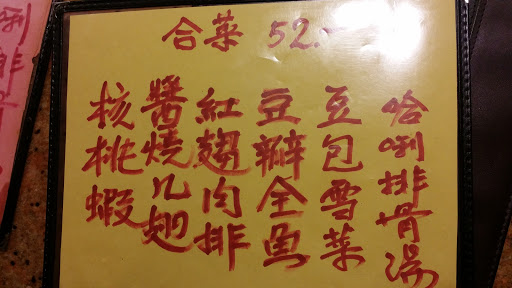 合菜 52.
哈唎排骨湯
豆包雪菜
豆瓣全魚
紅趐肉排
醬燒几翅
核桃蝦